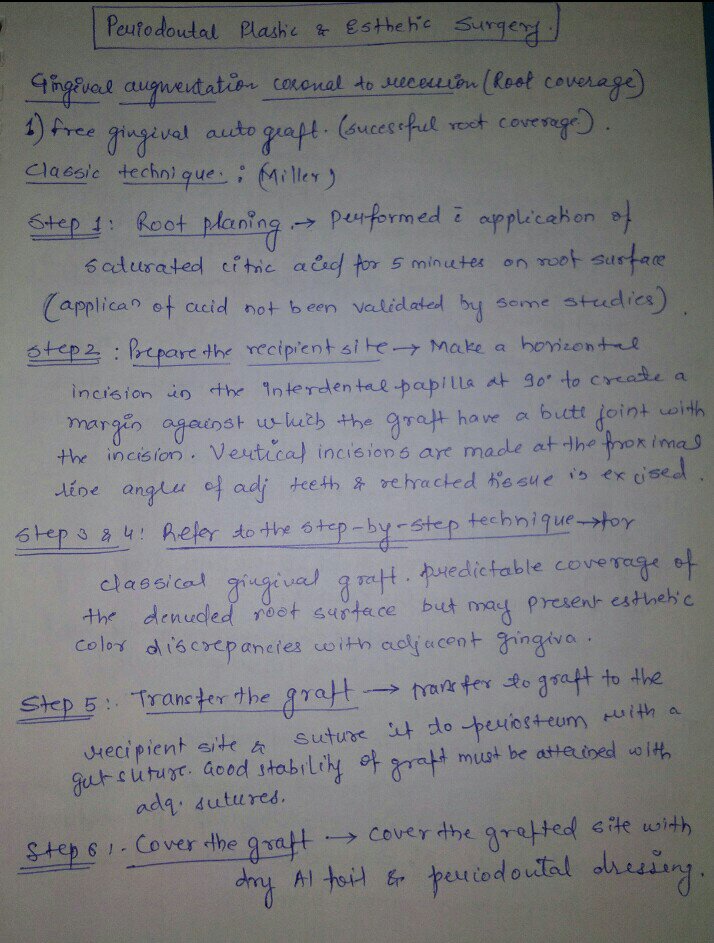 Periodontal Plastic & Esthetic Surgery.
Gingival augmentation coronal to recession (Root coverage)
1) free gingival auto graft. (sucessful root coverage).
Classic technique : (Miller)
Step 1: Root planing. → Performed c̄ application of
saturated citric acid for 5 minutes on root surface
(applican of acid not been validated by some studies)
Step 2 : Prepare the recipient site → Make a horizontal
incision in the interdental papilla at 90° to create a
margin against which the graft have a butt joint with
the incision. Vertical incisions are made at the proximal
line angles of adj teeth & retracted tissue is excised.
Step 3 & 4: Refer to the step-by-step technique → for
classical gingival graft. predictable coverage of
the denuded root surface but may present esthetic
color discrepancies with adjacent gingiva.
Step 5:. Transfer the graft → transfer to graft to the
recipient site & suture it to periosteum with a
gut suture. Good stability of graft must be attained with
adq. sutures.
Step 6:. Cover the graft → cover the grafted site with
dry Al foil & periodontal dressing.